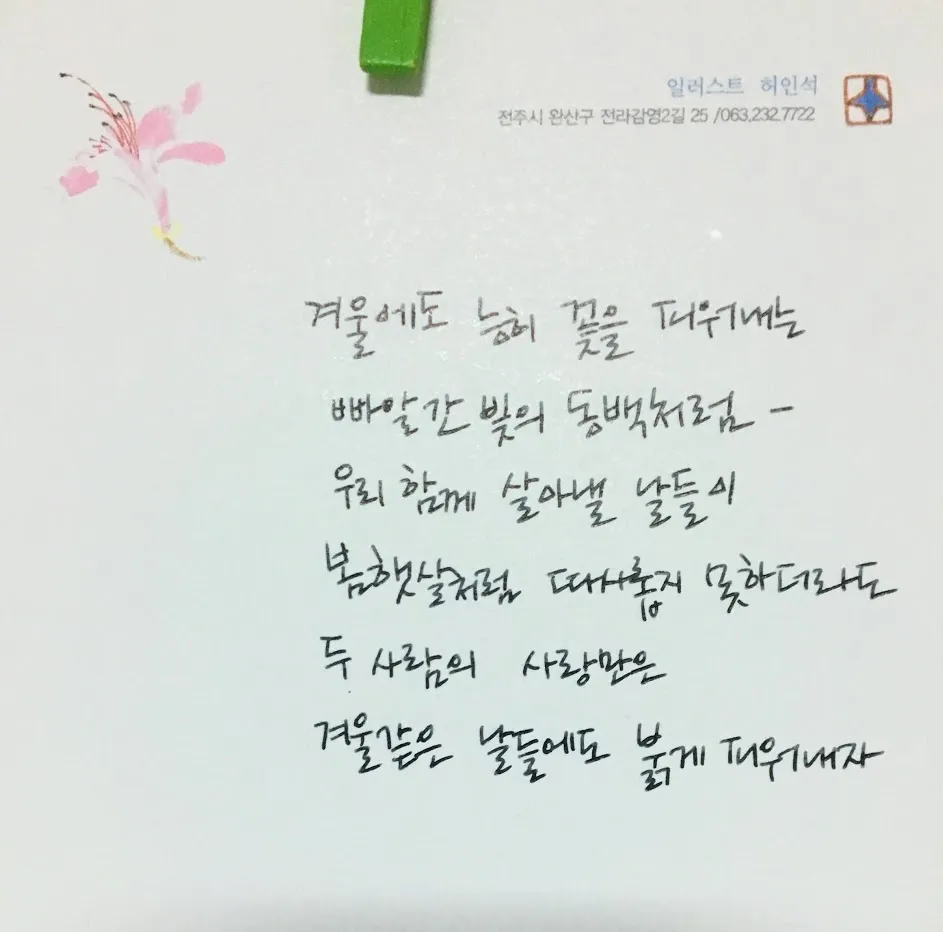 일러스트 허인석
전주시 완산구 전라감영2길 25 /063.232.7722
겨울에도 능히 꽃을 피워내는
빠알간 빛의 동백처럼 -
우리 함께 살아낼 날들이
봄햇살처럼 따사롭지 못하더라도
두 사람의 사랑만은
겨울같은 날들에도 붉게 피워내자